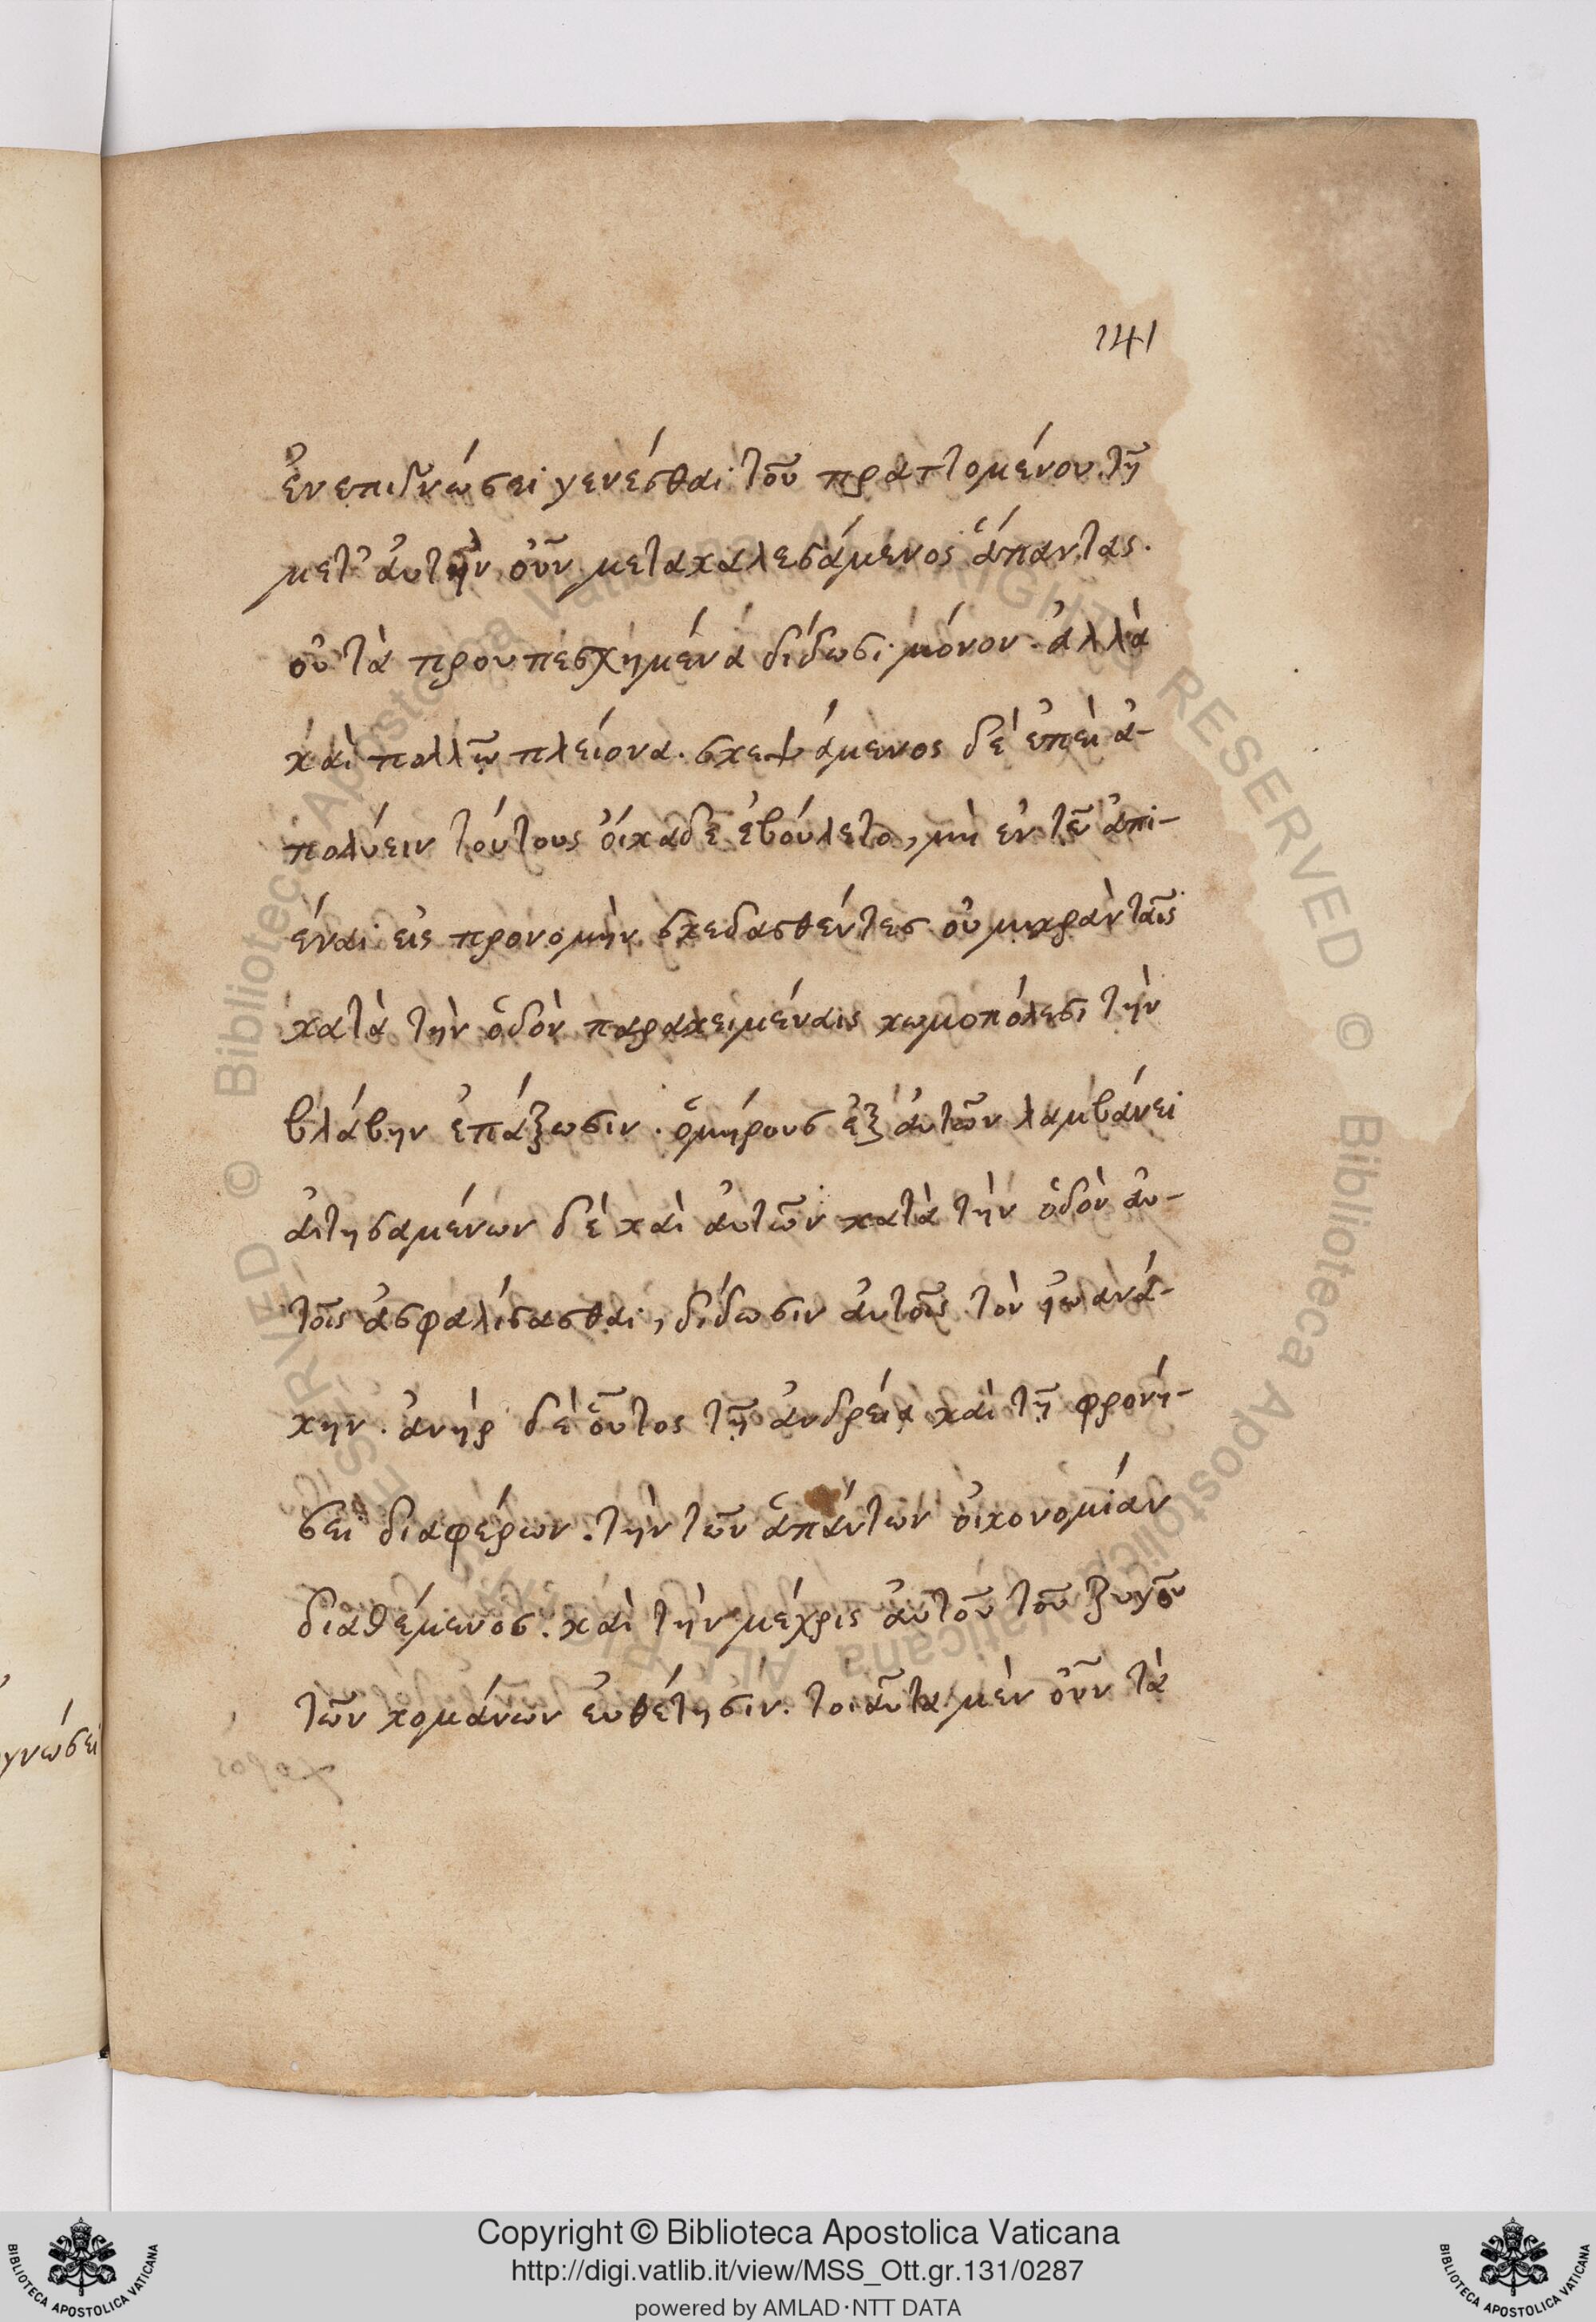 141
ἐν επιγνώσει γενέσθαι τοῦ πραττομένου. τῇ
μετ' ἀυτὴν οὖν μετακαλεσάμενος ἅπαντας.
οὐ τὰ προυπεσχημένα δίδωσι μόνον. ἀλλὰ
καὶ πολλῷ πλείονα. σκεψάμενος δὲ ἐπεὶ ἀ-
πολύειν τούτους ὄικαδε ἐβούλετο, μὴ ἐν τῷ ἀπι-
έναι εἰς προνομὴν σκεδασθέντες οὐ μικρὰν ταῖς
κατὰ τὴν ὁδὸν παρακειμέναις κωμοπόλεσι τὴν
βλάβην ἐπάξωσιν. ὁμήρους ἐξ ἀυτῶν λαμβάνει
ἀιτησαμένων δὲ καὶ ἀυτῶν κατὰ τὴν ὁδὸν ἀυ-
τοῖς ἀσφαλίσασθαι, δίδωσιν ἀυτοῖς τὸν ἰωανά-
κην. ἀνήρ δὲ οὗτος τῇ ἀνδρείᾳ καὶ τῇ φρονή-
σει διαφέρων. τὴν τῶν ἁπάντων ὀικονομίαν
διαθέμενος. καὶ τὴν μέχρις ἀυτοῦ τοῦ ζυγοῦ
τῶν κομάνων ἐυθέτησιν. τοιαῦτα μὲν οὖν τὰ
γνώσει
Copyright © Biblioteca Apostolica Vaticana
http://digi.vatlib.it/view/MSS_Ott.gr.131/0287
powered by AMLAD·NTT DATA